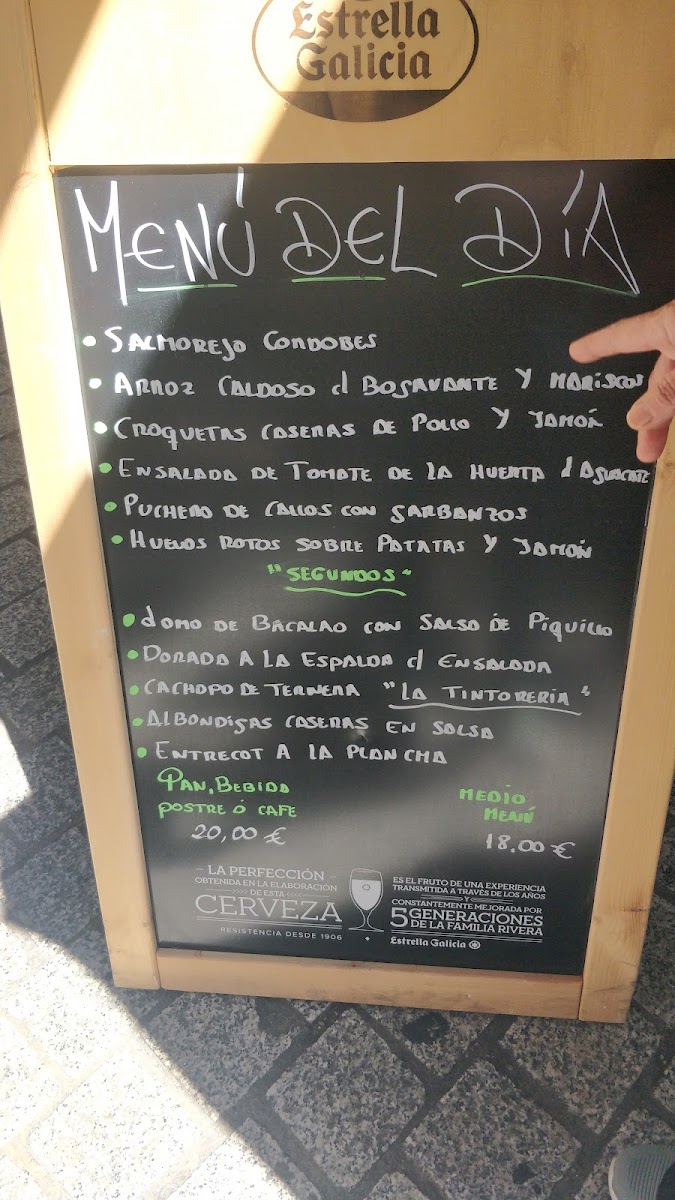 Estrella
Galicia
MENÚ DEL DÍA
• SALMOREJO CORDOBES
• ARROZ CALDOSO d BOGAVANTE Y MARISCOS
• CROQUETAS CASERAS DE POLLO Y JAMÓN
• ENSALADA DE TOMATE DE LA HUERTA d AGUACATE
• PUCHERO DE CALLOS CON GARBANZOS
• HUEVOS ROTOS SOBRE PATATAS Y JAMÓN
"SEGUNDOS"
• LOMO DE BACALAO CON SALSA DE PIQUILLO
• DORADA A LA ESPALDA d ENSALADA
• CACHOPO DE TERNERA "LA TINTORERIA"
• ALBONDIGAS CASERAS EN SALSA
• ENTRECOT A LA PLANCHA
PAN, BEBIDA
POSTRE Ó CAFE
20,00 €
MEDIO
MENÚ
18.00 €
LA PERFECCIÓN
OBTENIDA EN LA ELABORACIÓN
DE ESTA
CERVEZA
RESISTENCIA DESDE 1906
ES EL FRUTO DE UNA EXPERIENCIA
TRANSMITIDA A TRAVÉS DE LOS AÑOS
Y
CONSTANTEMENTE MEJORADA POR
5 GENERACIONES
DE LA FAMILIA RIVERA
Estrella Galicia